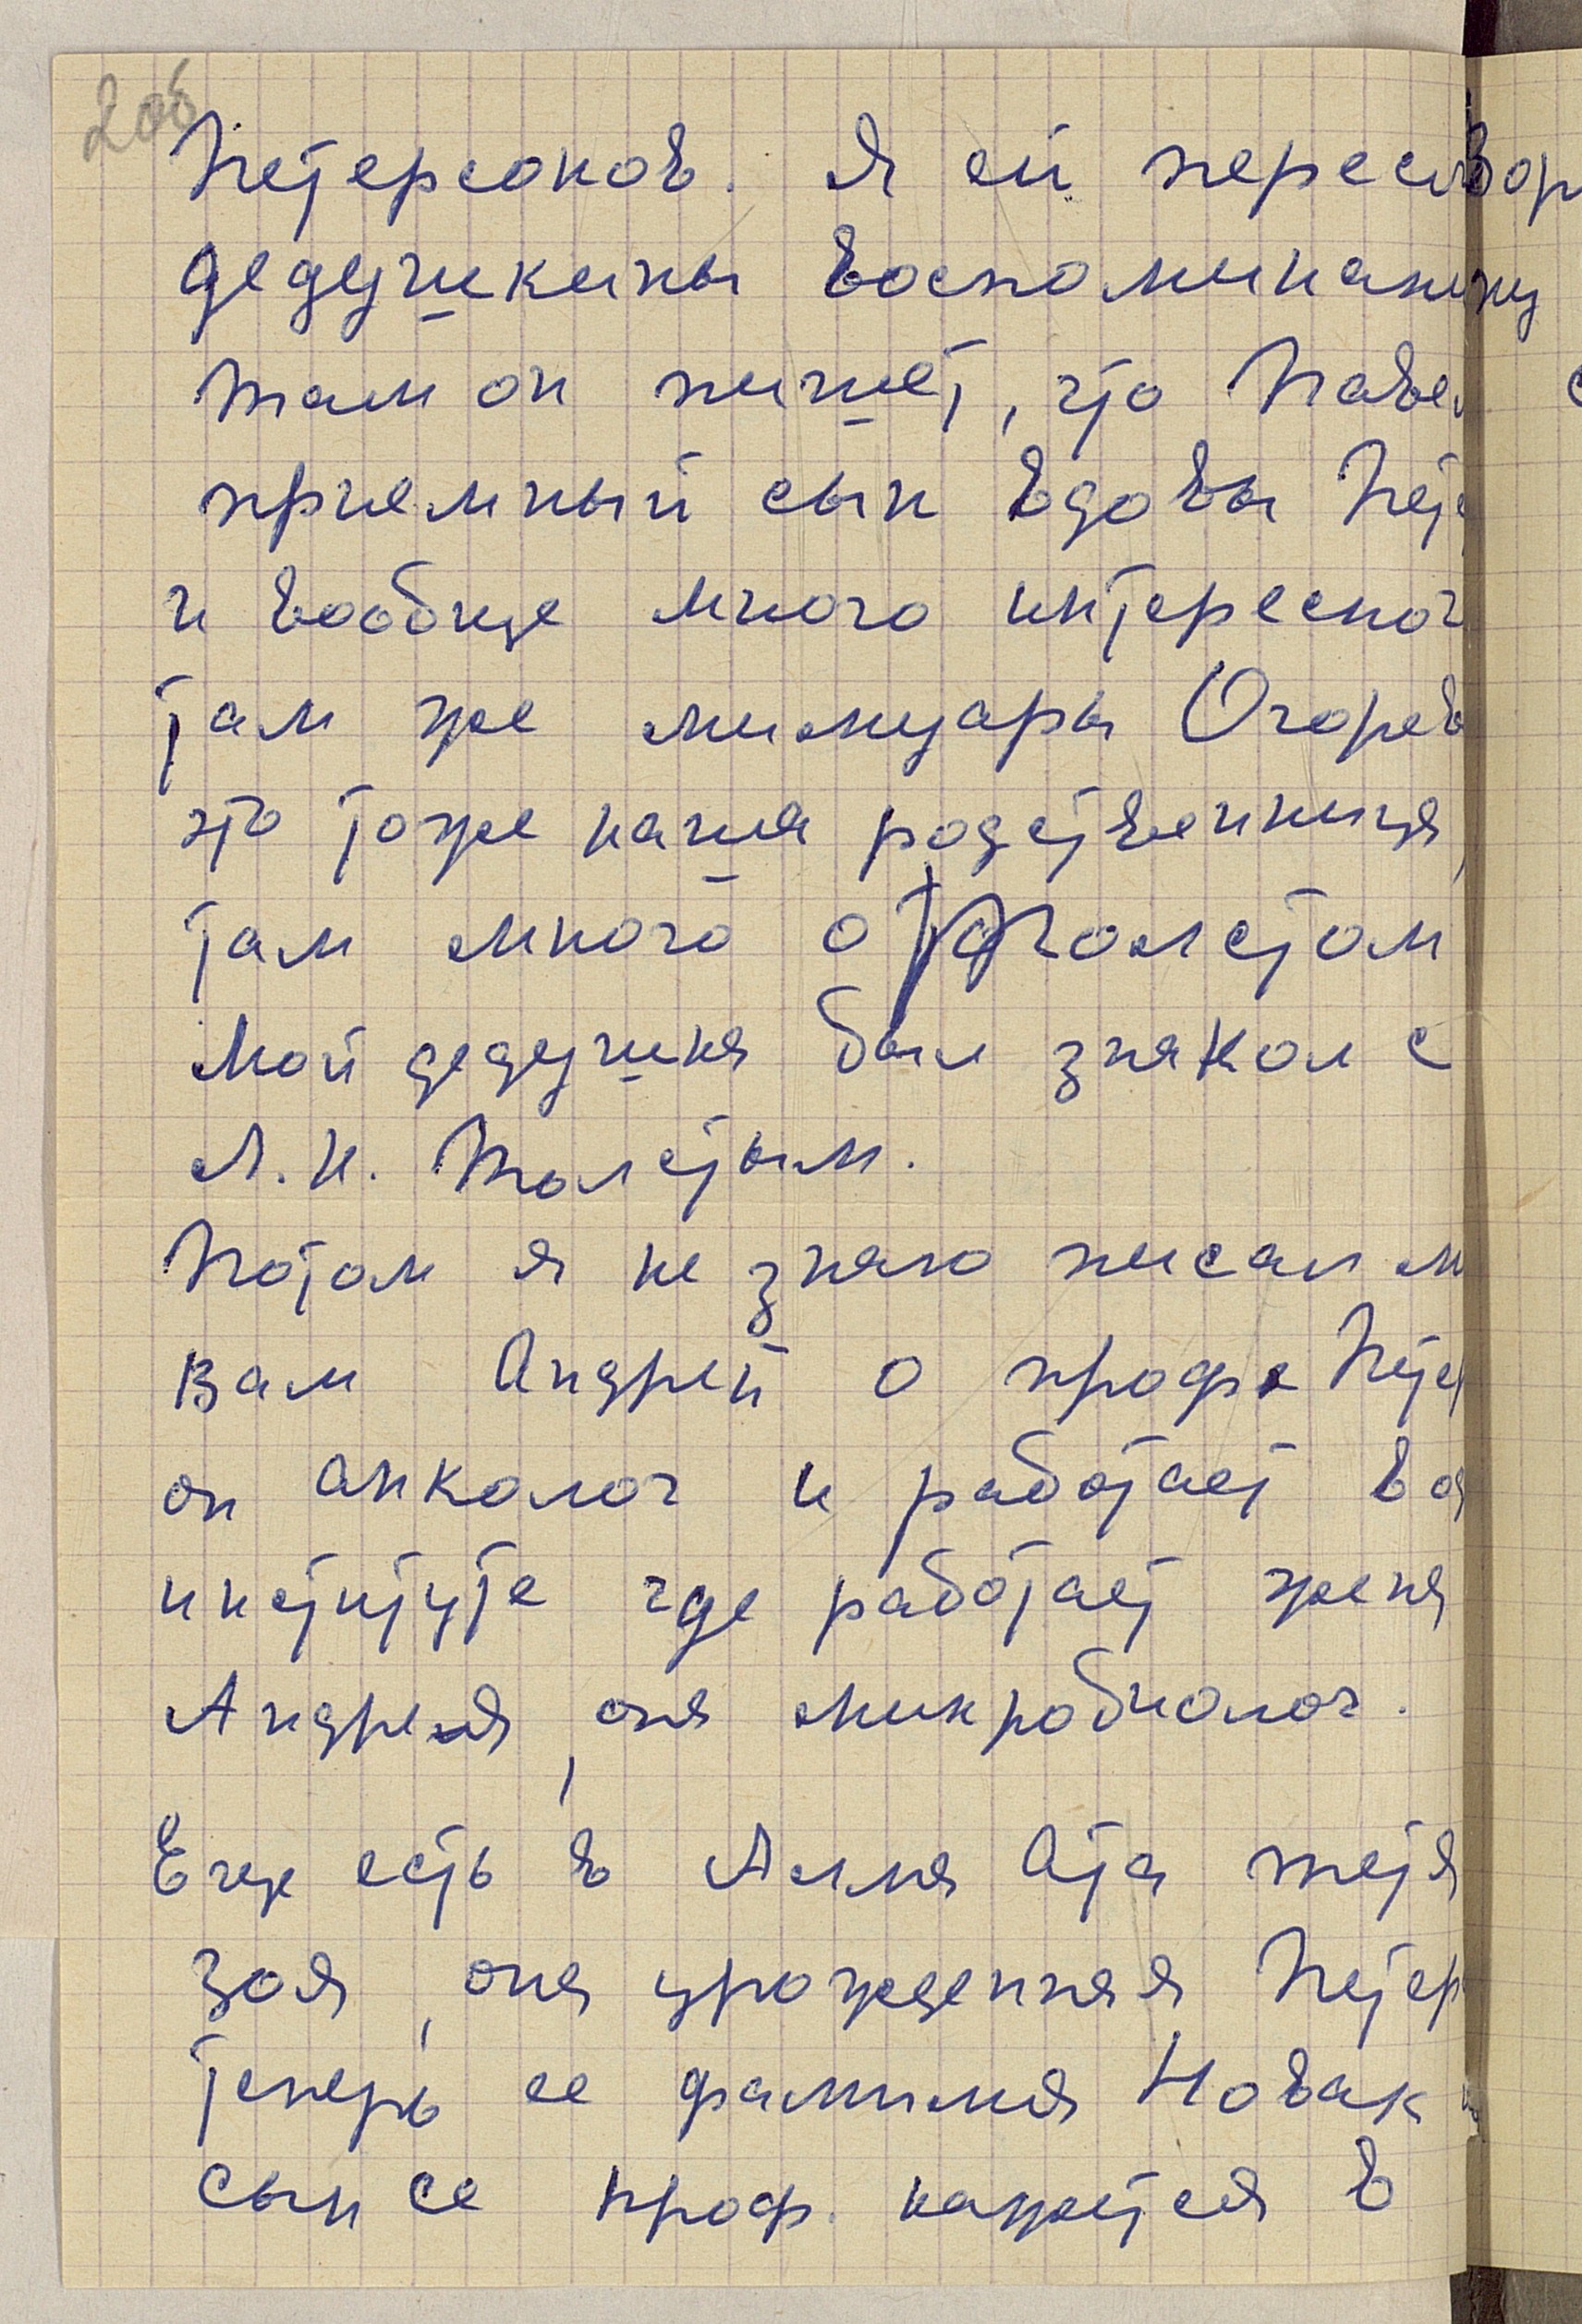 2об
Петерсонов. Я ей пересл
дедушкины воспоминани
Там он пишет, что Павел
приемный сын вдовы Пете
и вообще много интересног
там же мимуары Огорев
это тоже наша родственница,
там много о Толстом
Мой дедушка был знаком с
Л. Н. Толстым.
Потом я не знаю писал л
вам Андрей о проф. Петер
он анколог и работает в
институте где работает жена
Андрея, она микробиолог.
Еще есть в Алма Ата тетя
Зоя, она урожденная Петер
теперь ее фамилия Новак
сын ее проф. кажется в